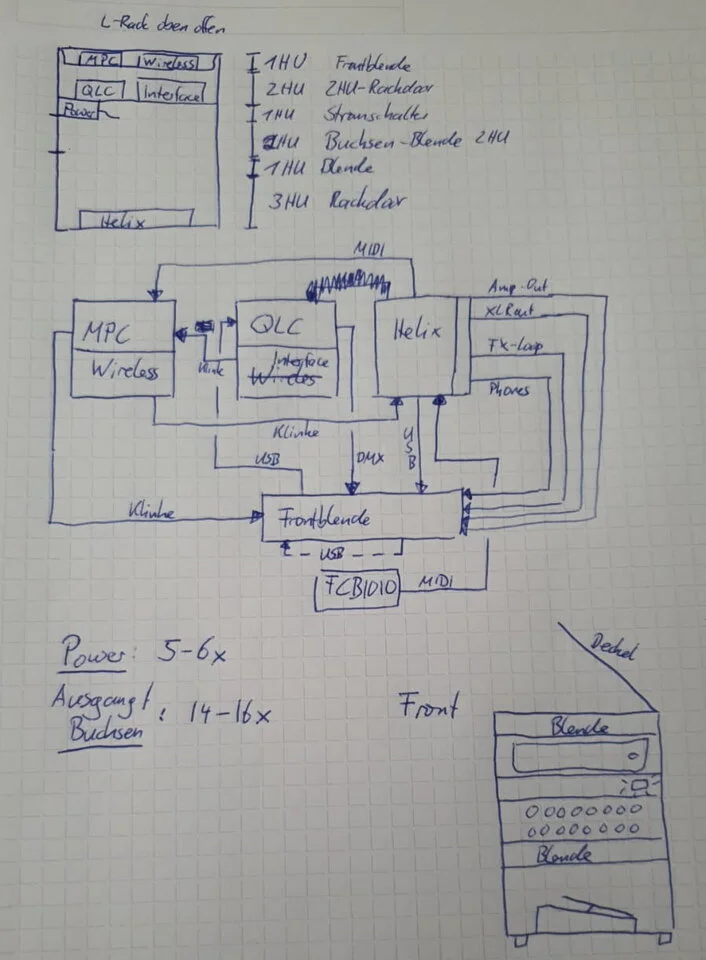 L-Rack oben offen
MPC Wireless 1HU Frontblende
QLC Interface 2HU 2HU-Rackdoor
Power 1HU Stromschalter
2HU Buchsen-Blende 2HU
1HU Blende
3HU Rackdoor
Helix
MIDI
Amp-Out
XLRout
MPC QLC Helix
FX-Loop
Wireless Klinke Interface
Phones
Klinke
USB DMX USB
Klinke Frontblende
USB
FCB1010 MIDI
Power: 5-6x
Deckel
Ausgang/
Buchsen : 14-16x
Front
Blende
Blende